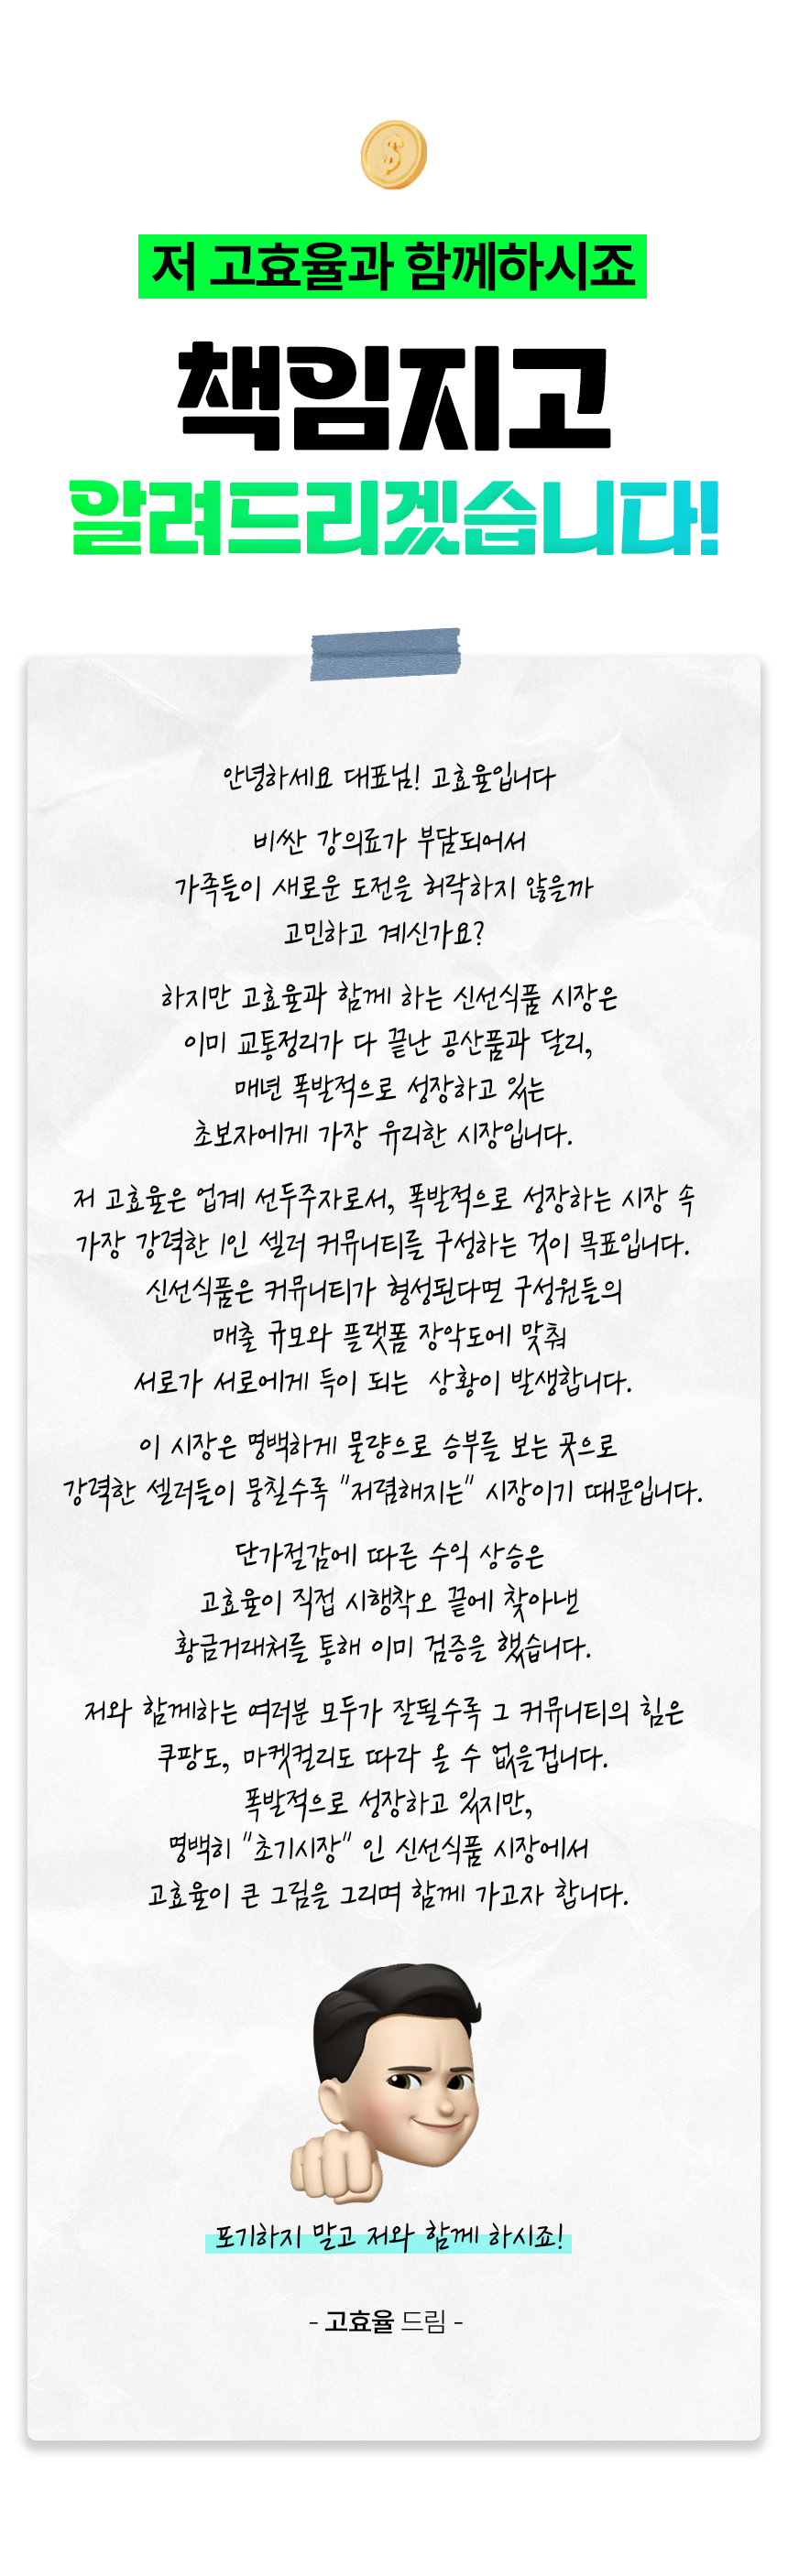 $
저 고효율과 함께하시죠
책임지고
알려드리겠습니다!
안녕하세요 대표님! 고효율입니다
비싼 강의료가 부담되어서
가족들이 새로운 도전을 허락하지 않을까
고민하고 계신가요?
하지만 고효율과 함께 하는 신선식품 시장은
이미 교통정리가 다 끝난 공산품과 달리,
매년 폭발적으로 성장하고 있는
초보자에게 가장 유리한 시장입니다.
저 고효율은 업계 선두주자로서, 폭발적으로 성장하는 시장 속
가장 강력한 1인 셀러 커뮤니티를 구성하는 것이 목표입니다.
신선식품은 커뮤니티가 형성된다면 구성원들의
매출 규모와 플랫폼 장악도에 맞춰
서로가 서로에게 득이 되는 상황이 발생합니다.
이 시장은 명백하게 물량으로 승부를 보는 곳으로
강력한 셀러들이 뭉칠수록 "저렴해지는" 시장이기 때문입니다.
단가절감에 따른 수익 상승은
고효율이 직접 시행착오 끝에 찾아낸
황금거래처를 통해 이미 검증을 했습니다.
저와 함께하는 여러분 모두가 잘될수록 그 커뮤니티의 힘은
쿠팡도, 마켓컬리도 따라 올 수 없을겁니다.
폭발적으로 성장하고 있지만,
명백히 "초기시장" 인 신선식품 시장에서
고효율이 큰 그림을 그리며 함께 가고자 합니다.
포기하지 말고 저와 함께 하시죠!
- 고효율 드림 -